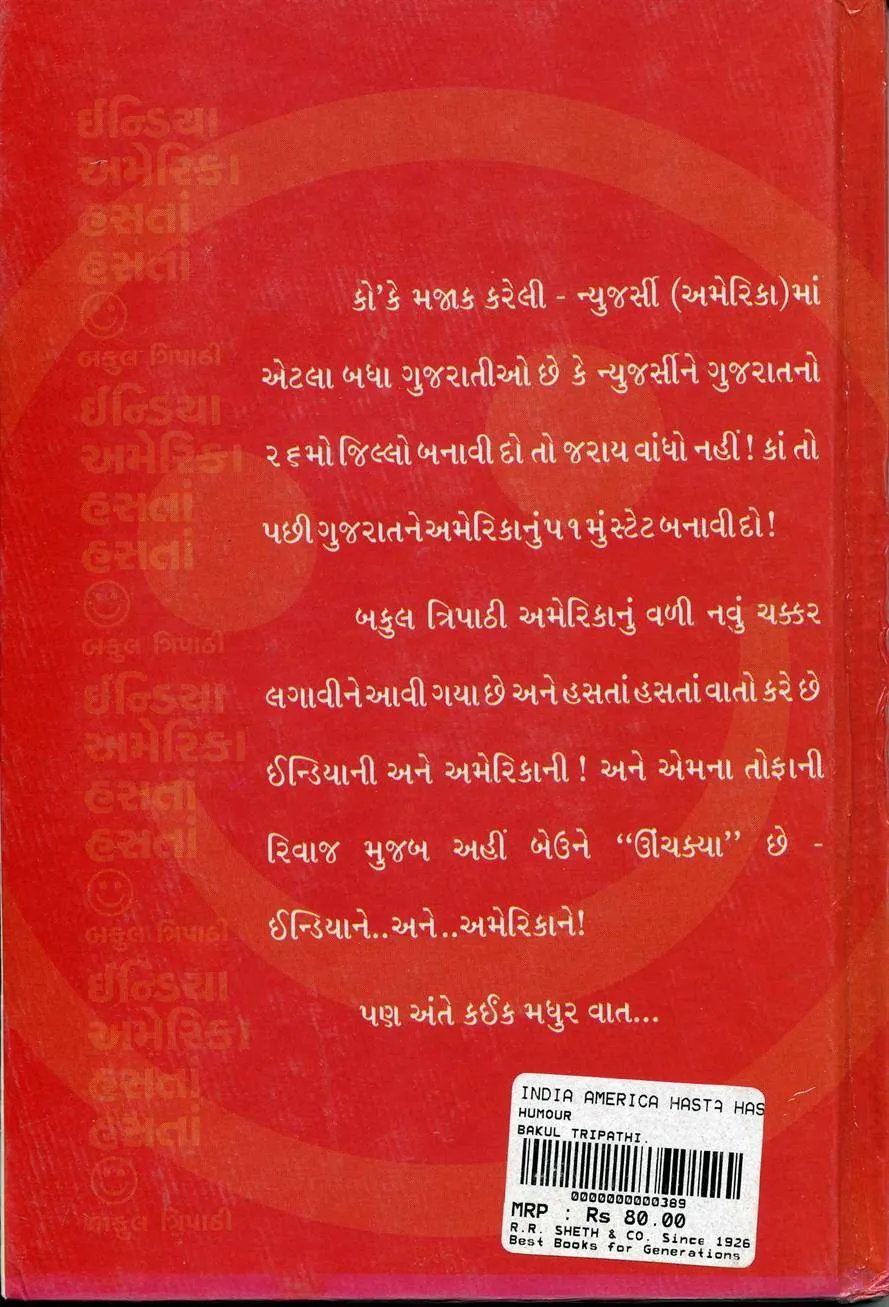 ઈન્ડિયા
અમેરિકા
હસતાં
હસતાં
બકુલ ત્રિપાઠી
ઈન્ડિયા
અમેરિકા
હસતાં
હસતાં
બકુલ ત્રિપાઠી
ઈન્ડિયા
અમેરિકા
હસતાં
હસતાં
બકુલ ત્રિપાઠી
ઈન્ડિયા
અમેરિકા
હસતાં
હસતાં
બકુલ ત્રિપાઠી
કો'કે મજાક કરેલી - ન્યુજર્સી (અમેરિકા)માં
એટલા બધા ગુજરાતીઓ છે કે ન્યુજર્સીને ગુજરાતનો
૨૬મો જિલ્લો બનાવી દો તો જરાય વાંધો નહીં! કાં તો
પછી ગુજરાતને અમેરિકાનું ૫૧મું સ્ટેટ બનાવી દો!
બકુલ ત્રિપાઠી અમેરિકાનું વળી નવું ચક્કર
લગાવીને આવી ગયા છે અને હસતાં હસતાં વાતો કરે છે
ઈન્ડિયાની અને અમેરિકાની! અને એમના તોફાની
રિવાજ મુજબ અહીં બેઉને “ઊંચક્યા” છે -
ઈન્ડિયાને..અને..અમેરિકાને!
પણ અંતે કઈંક મધુર વાત...
INDIA AMERICA HASTA HAS
HUMOUR
BAKUL TRIPATHI.
0000000000389
MRP : Rs 80.00
R.R. SHETH & CO. Since 1926
Best Books for Generations